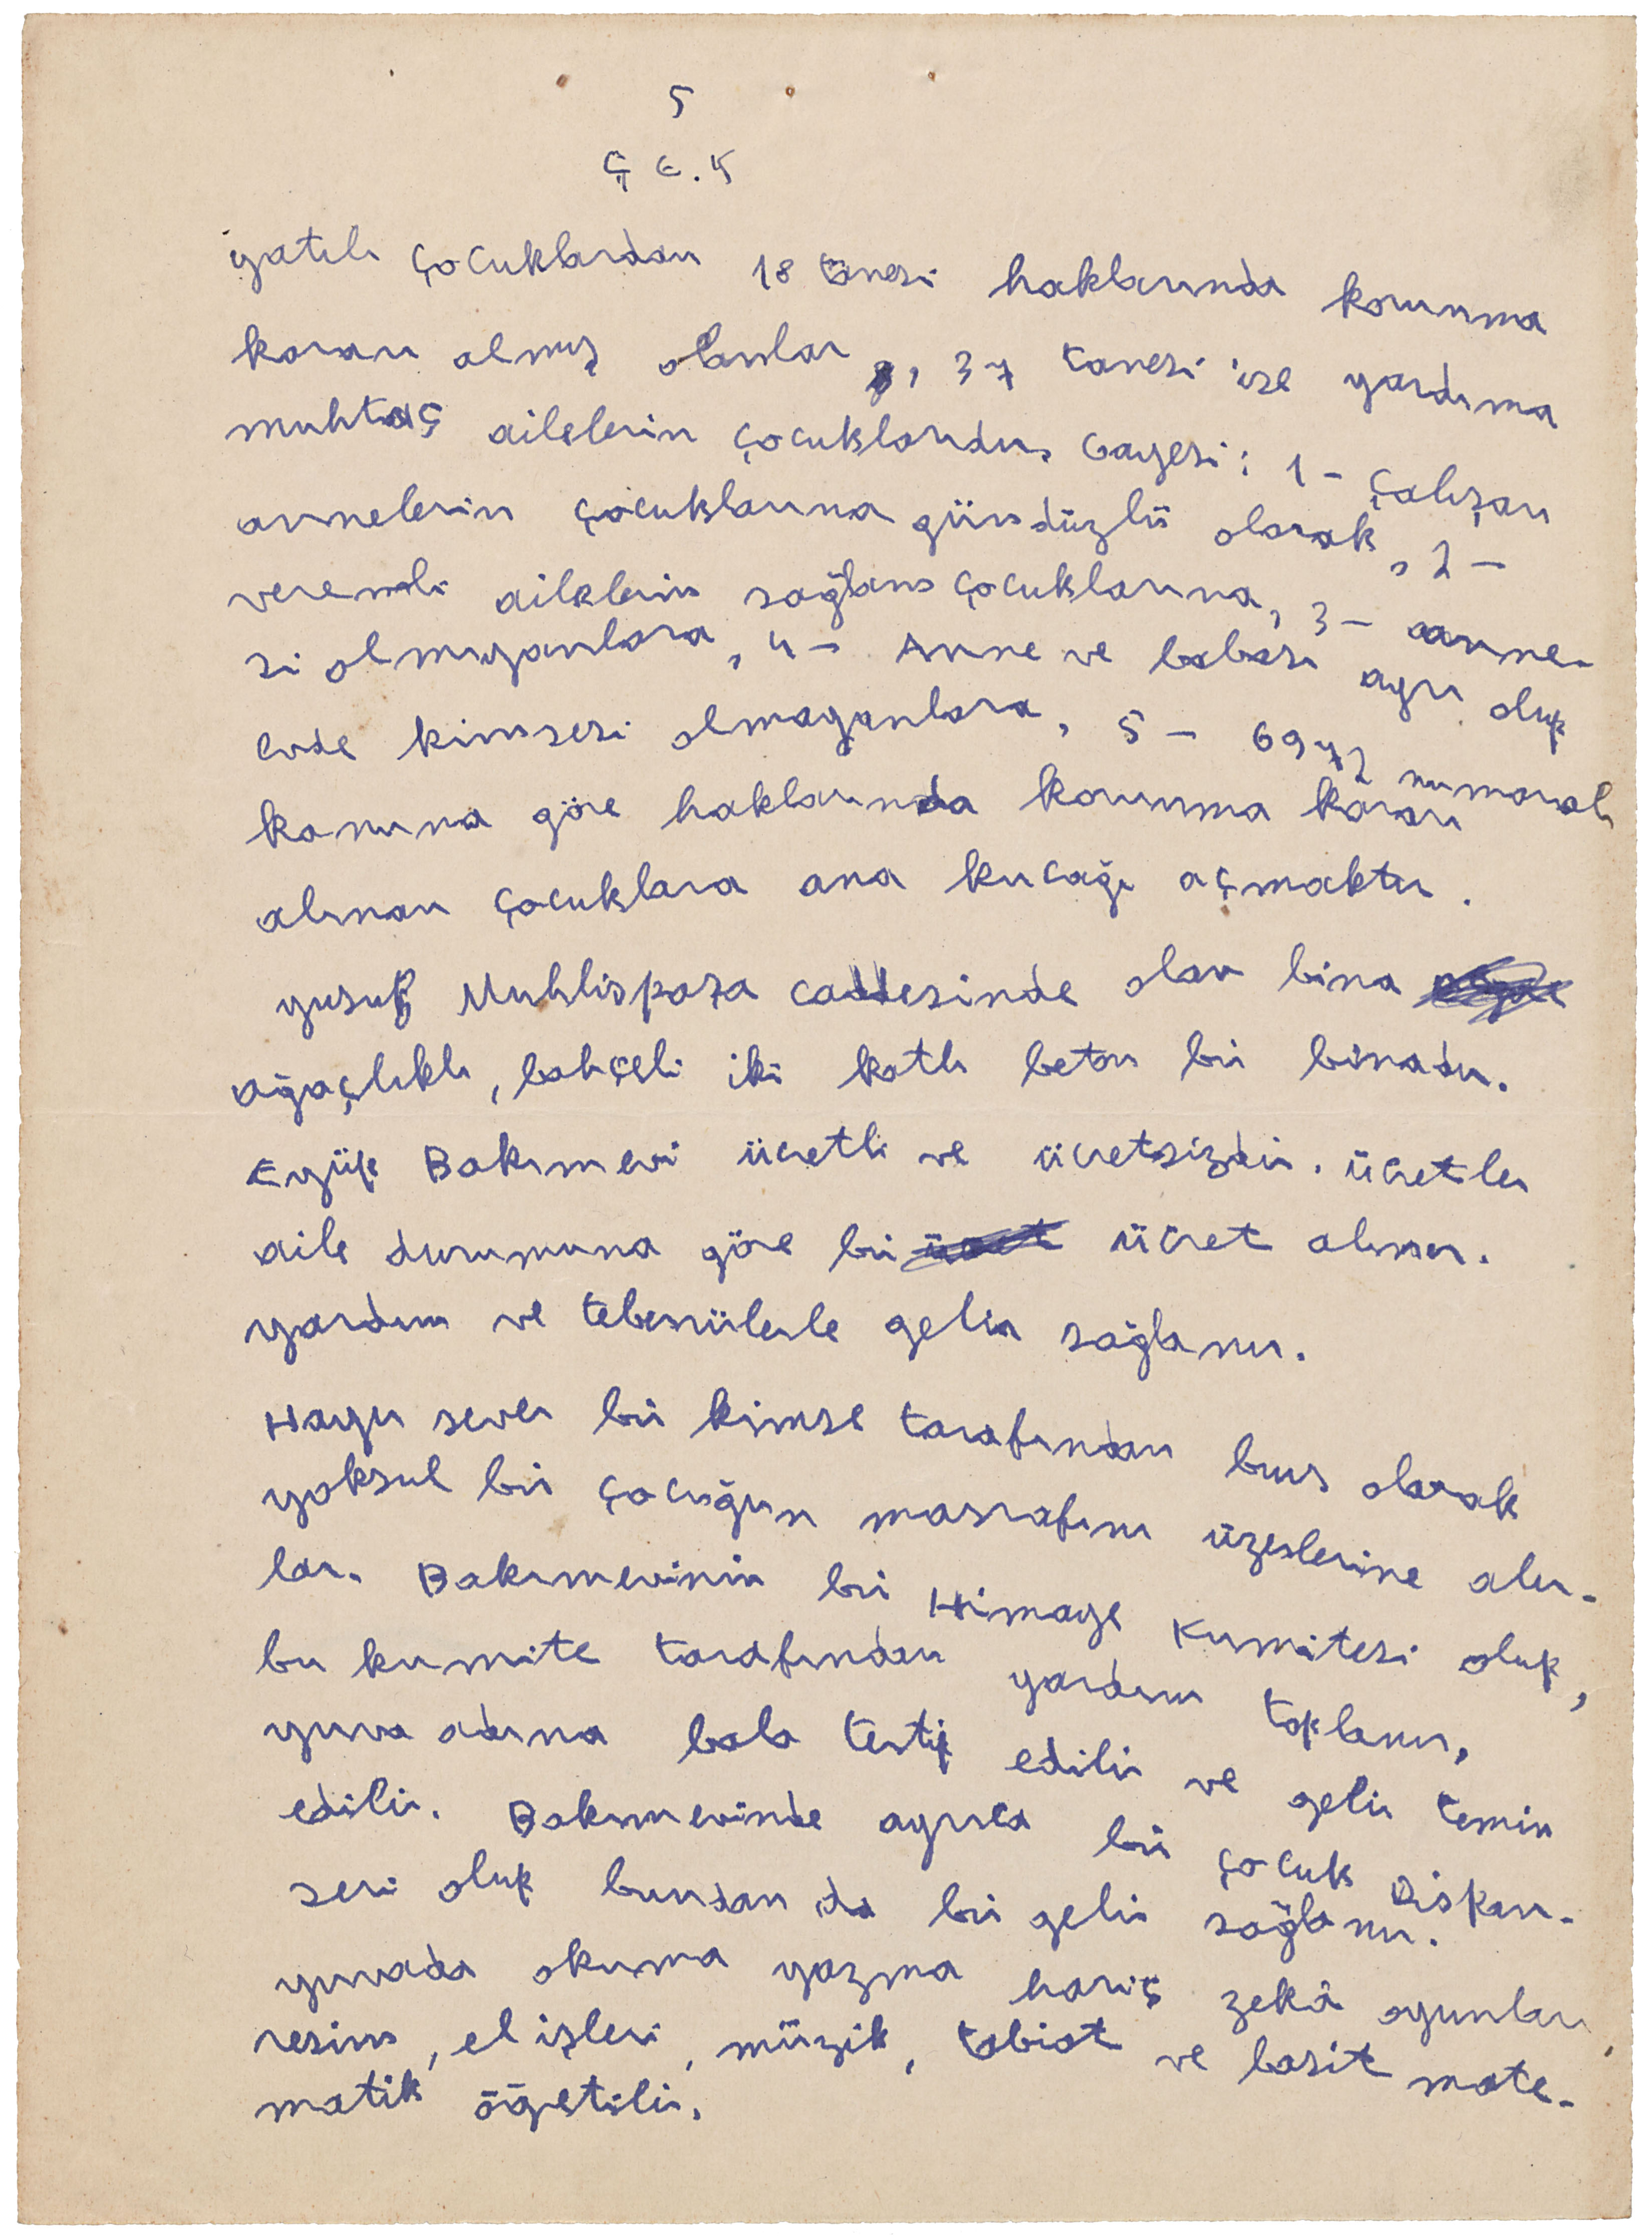 5
Ç E. K
yatılı çocuklardan 18 tanesi haklarında korunma
kararı almış olanlar, 37 tanesi ise yardıma
muhtaç ailelerin çocuklarıdır. Gayesi: 1- Çalışan
annelerin çocuklarına gündüzlü olarak, 2-
veremli ailelerin sağlam çocuklarına, 3- anne-
si olmıyanlara, 4- Anne ve babası ayrı olup
evde kimsesi olmayanlara, 5- 6972 numaralı
kanuna göre haklarında korunma kararı
alınan çocuklara ana kucağı açmaktır.
Yusuf Muhlispaşa caddesinde olan bina
ağaçlıklı, bahçeli iki katlı beton bir binadır.
Eyüp Bakımevi ücretli ve ücretsizdir. ücretler
aile durumuna göre bir ücret alınır.
yardım ve teberrülerle gelir sağlanır.
Hayır sever bir kimse tarafından burs olarak
yoksul bir çocuğun masrafını üzerlerine alır-
lar. Bakımevinin bir Himaye Kumitesi olup,
bu kumite tarafından yardım toplanır,
yuva adına balo tertip edilir ve gelir temin
edilir. Bakımevinde ayrıca bir çocuk Dispan-
seri olup bundan da bir gelir sağlanır.
yuvada okuma yazma hariç zekâ oyunları,
resim, el işleri, müzik, tabiat ve basit mate-
matik öğretilir.